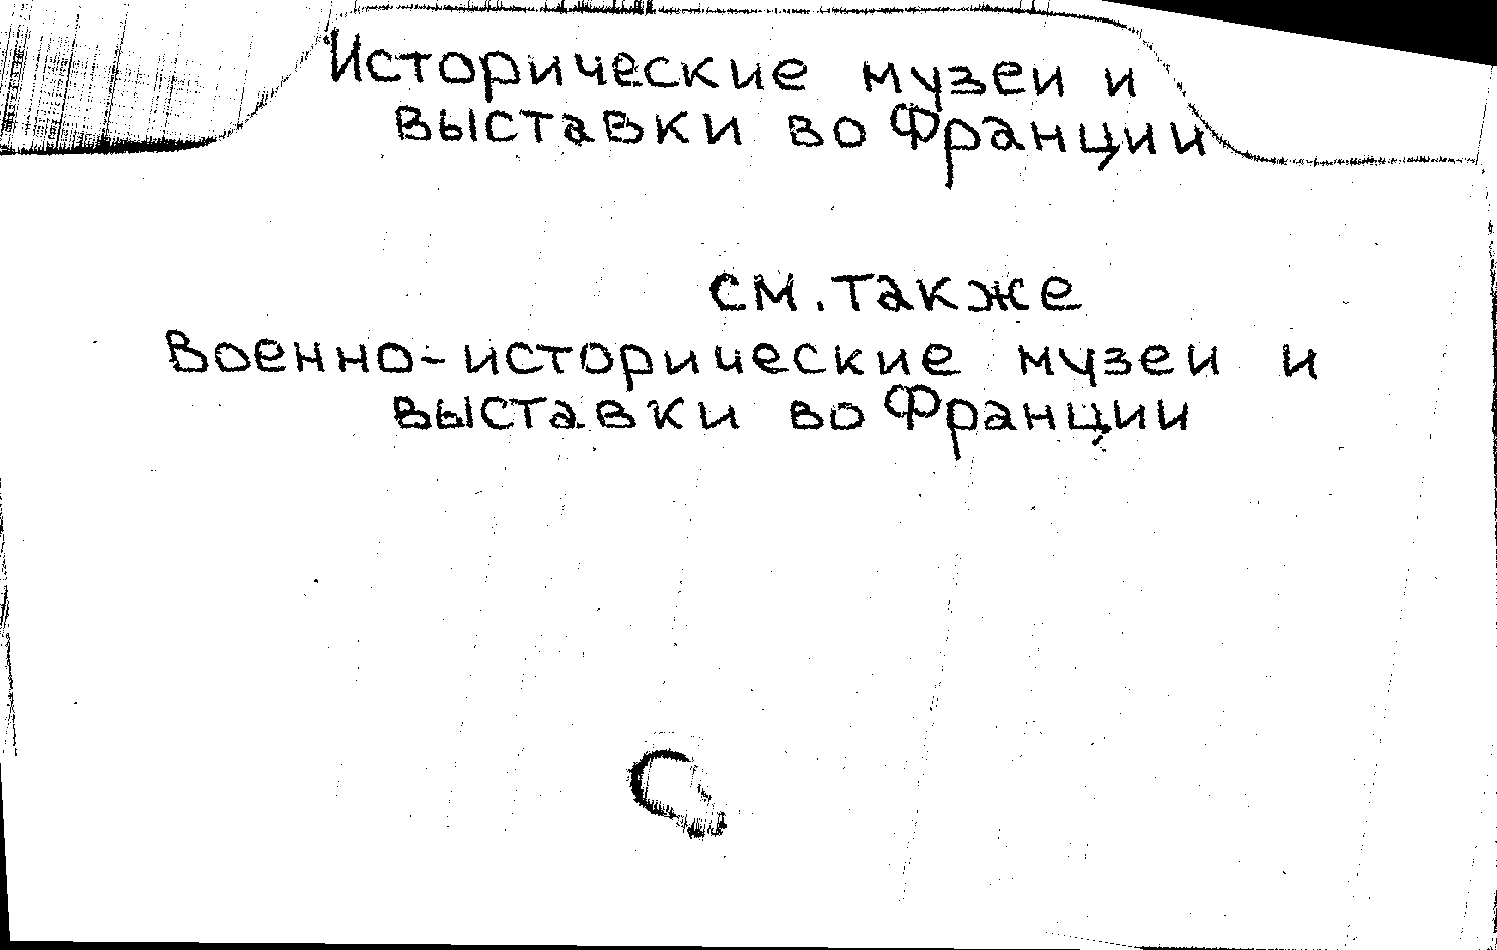 Исторические музеи и
выставки во Франции
см. также
Военно-исторические музеи и
выставки во Франции